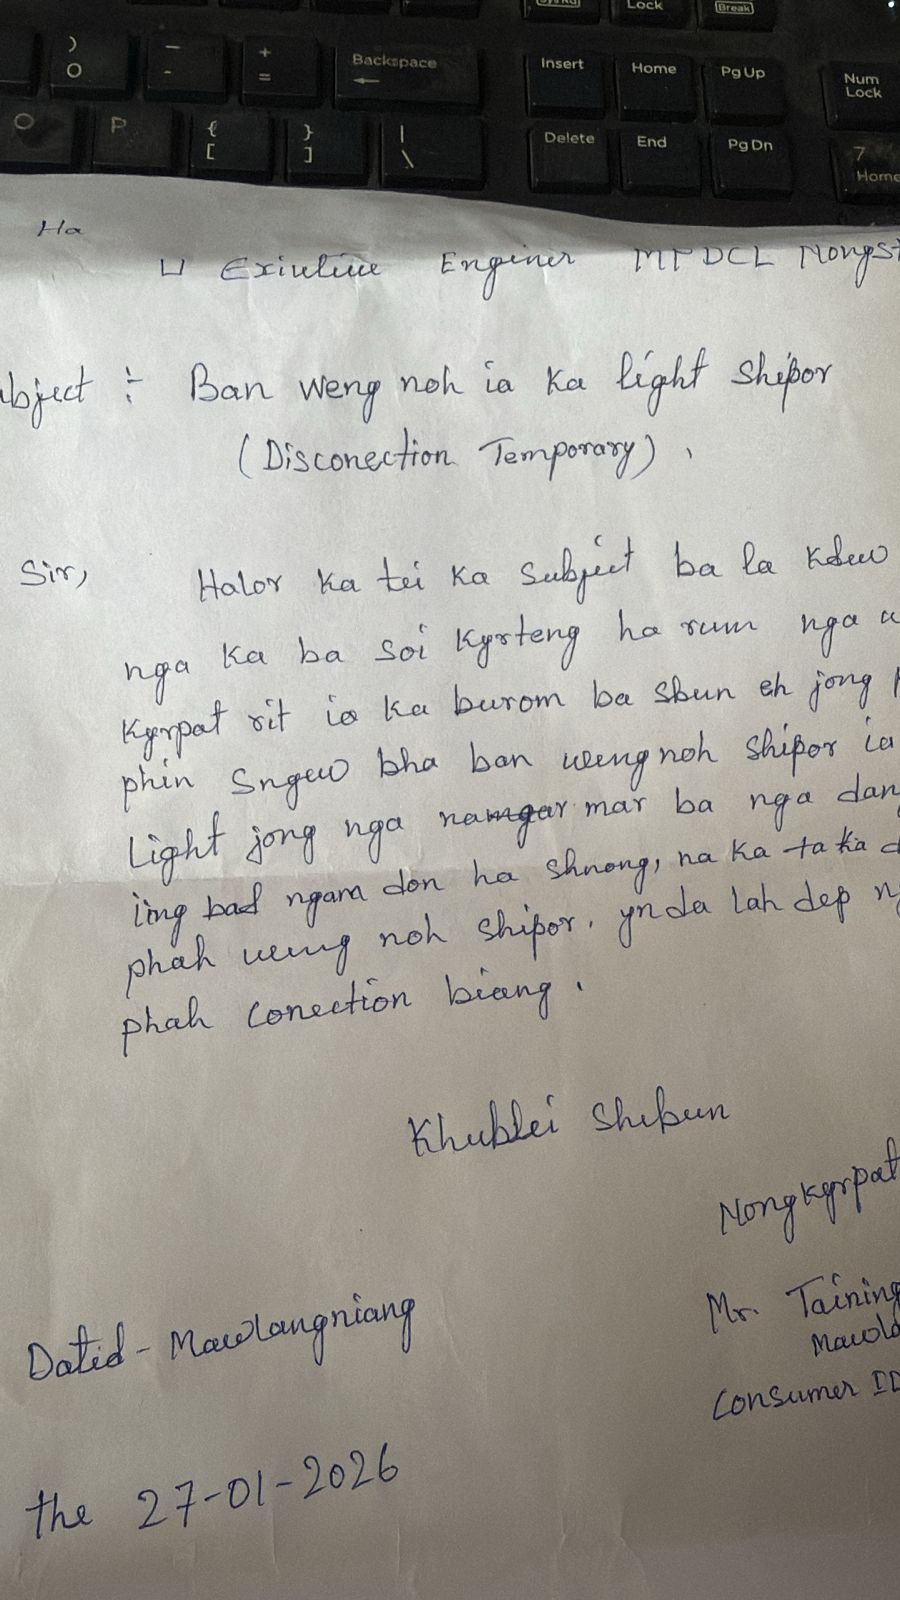 Lock
Break
)
0
_
-
+
=
Backspace
Insert
Home
Pg Up
Num
Lock
O
P
{
[
}
]
|
\
Delete
End
Pg Dn
7
Home
Ha
U Exiutive Enginer MPDCL Nongst
bject :- Ban weng noh ia ka light shipor
(Disconection Temporary).
Sir,
Halor ka tei ka subject ba la kdew
nga ka ba soi kyrteng ha rum nga u
kyrpat rit ia ka burom ba sbun eh jong
phin sngew bha ban weng noh shipor ia
Light jong nga mar ba nga dang
iing bad ngam don ha shnong, na ka ta ka d
phah weng noh shipor. ynda lah dep
phah conection biang.
Khublei shibun
Nongkyrpat
Mr. Taining
Mawla
Consumer ID
Datid - Mawlangniang
the 27-01-2026